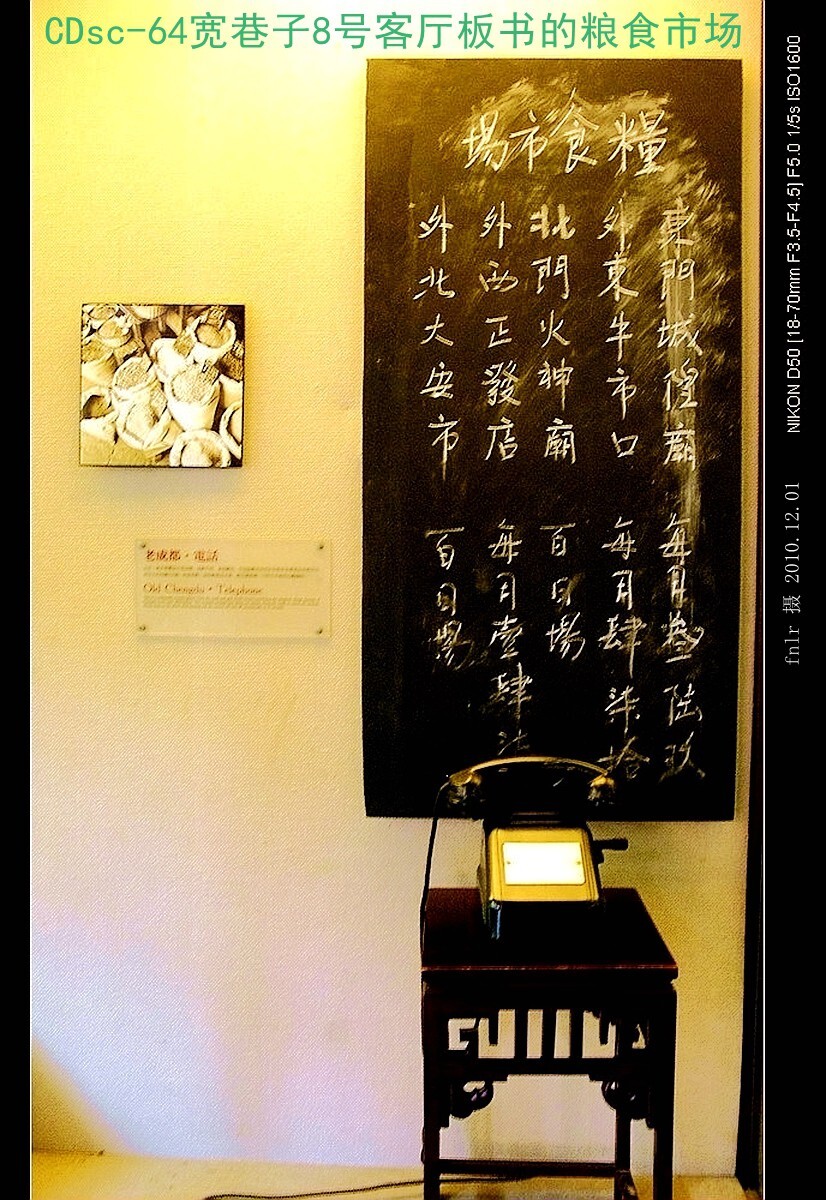 CDsc-64宽巷子8号客厅板书的粮食市场
糧食市場
東門城隍廟 每月叁陆玖
外東牛市口 每月肆柒拾
北門火神廟 百日場
外西正發店 每月壹肆柒
外北大安市 百日場
老成都·電話
Old Chengdu·Telephone
NIKON D50 [18-70mm F3.5-F4.5] F5.0 1/5s ISO1600
fnlr 摄 2010.12.01